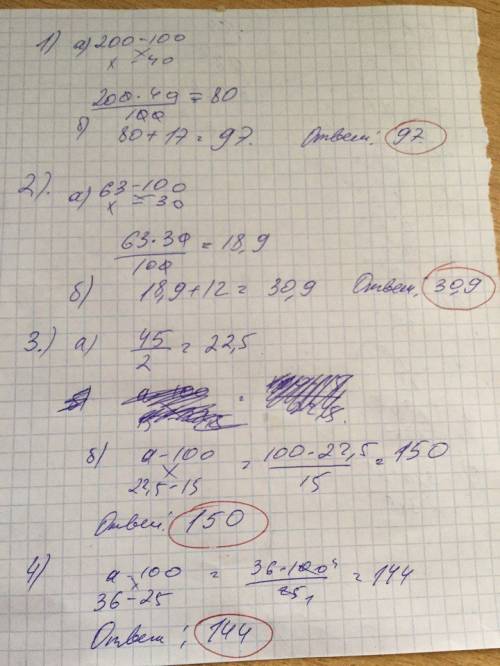 1) а) 200 - 100
x - 40
200 · 40 / 100 = 80
б) 80 + 17 = 97. Ответ: 97
2). а) 63 - 100
x - 30
63 · 30 / 100 = 18,9
б) 18,9 + 12 = 30,9 Ответ: 30,9
3.) а) 45 / 2 = 22,5
б) a - 100 = 100 · 22,5 / 15 = 150
22,5 - 15
Ответ: 150
4) a - 100 = 36 · 100 4 / 25 1 = 144
36 - 25
Ответ: 144